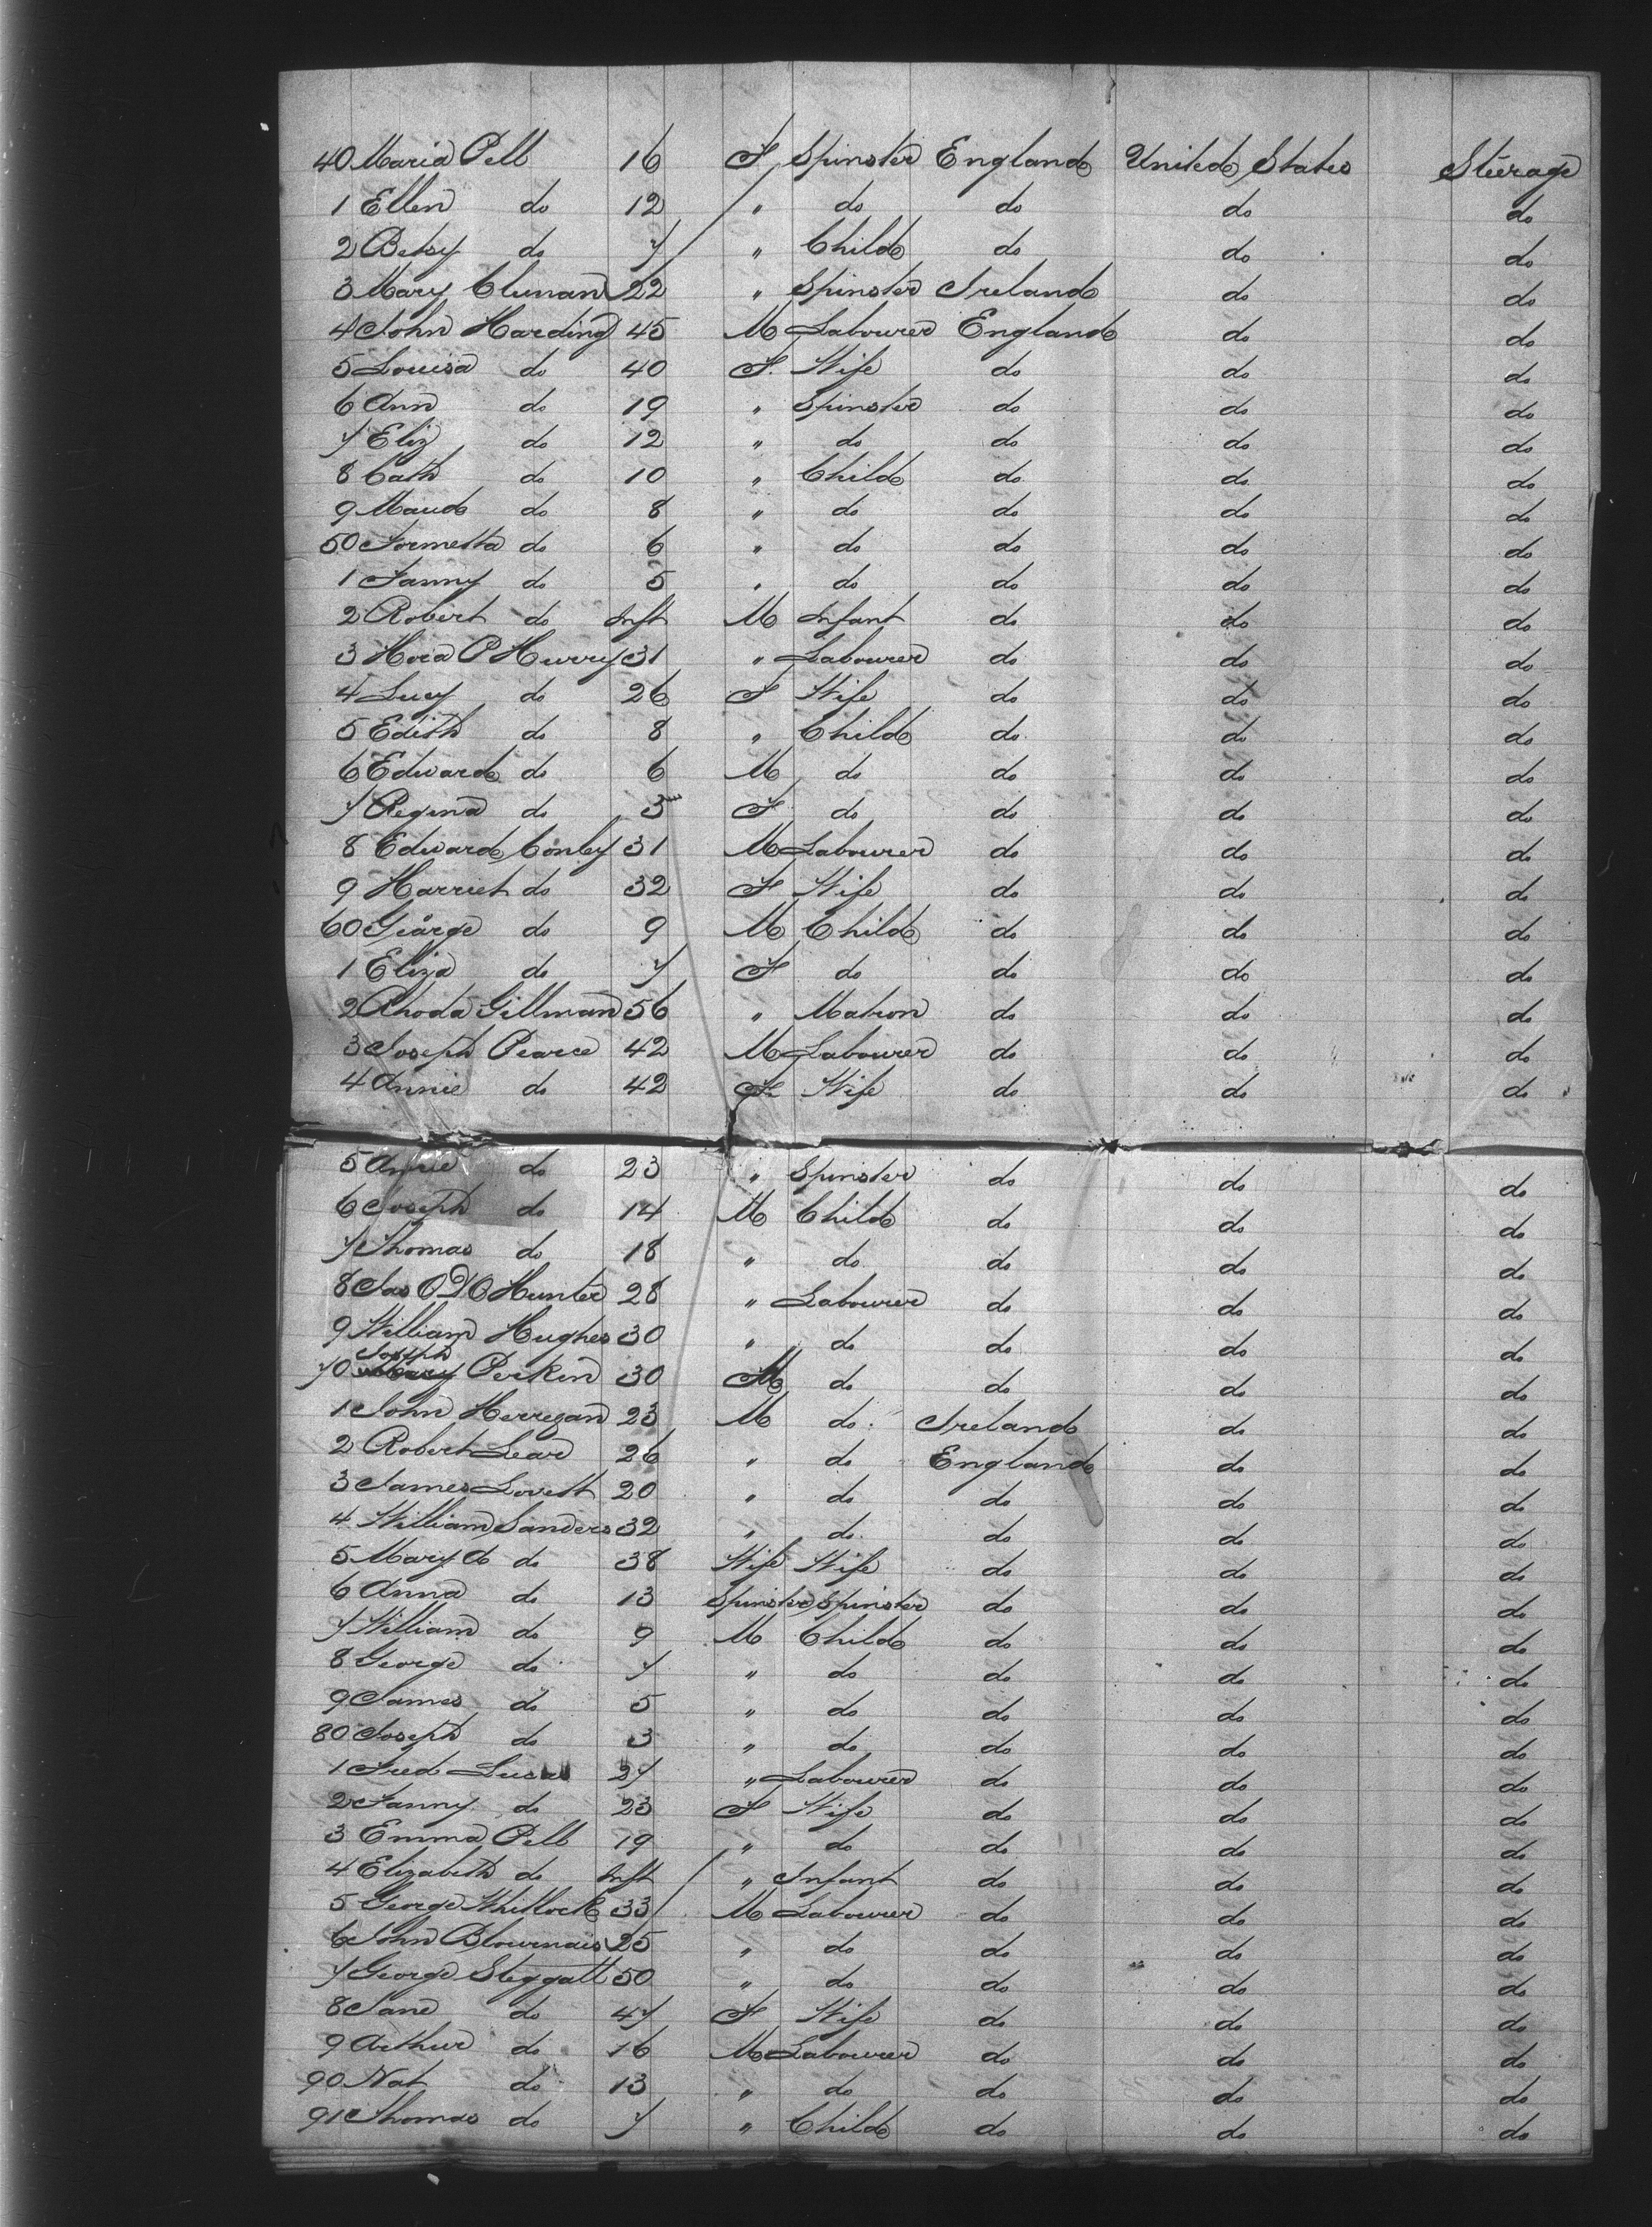 40 Maria Pell 16 F Spinster England United States Steerage
1 Ellen do 12 " do do do do
2 Betsy do 7 " Child do do do
3 Mary Clunan 22 " Spinster Ireland do do
4 John Harding 45 M Labourer England do do
5 Louisa do 40 F. Wife do do do
6 Ann do 19 " Spinster do do do
7 Eliz do 12 " do do do do
8 Cath do 10 " Child do do do
9 Maud do 8 " do do do do
50 do 6 " do do do do
1 Fanny do 5 " do do do do
2 Robert do Inft M Infant do do do
3 P Hurry 31 " Labourer do do do
4 Lucy do 26 F Wife do do do
5 Edith do 8 " Child do do do
6 Edward do 6 M do do do do
7 Regina do 3 F do do do do
8 Edward Conley 31 M Labourer do do do
9 Harriet do 32 F Wife do do do
60 George do 9 M Child do do do
1 Eliza do 7 F do do do do
2 Rhoda Gillman 56 " Matron do do do
3 Joseph Pearce 42 M Labourer do do do
4 Annie do 42 F. Wife do do do
5 Annie do 23 " Spinster do do do
6 Joseph do 14 M Child do do do
7 Thomas do 18 " do do do do
8 Jas Hunter 28 " Labourer do do do
9 William Hughes 30 " do do do do
Joseph
70 Mary Perkin 30 M do do do do
1 John Herregan 23 M do Ireland do do
2 Robert Lear 26 " do England do do
3 James Lovett 20 " do do do do
4 William Sanders 32 " do do do do
5 Mary A do 38 Wife Wife do do do
6 Anna do 13 Spinster Spinster do do do
7 William do 9 M Child do do do
8 George do 7 " do do do do
9 James do 5 " do do do do
80 Joseph do 3 " do do do do
1 Fred Lucas 27 " Labourer do do do
2 Fanny do 23 F Wife do do do
3 Emma Pell 19 " do do do do
4 Elizabeth do Inft " Infant do do do
5 George Whitlock 33 M Labourer do do do
6 John 25 " do do do do
7 George Steggatt 50 " do do do do
8 Jane do 47 F Wife do do do
9 Arthur do 16 M Labourer do do do
90 Nat do 13 " do do do do
91 Thomas do 7 " Child do do do